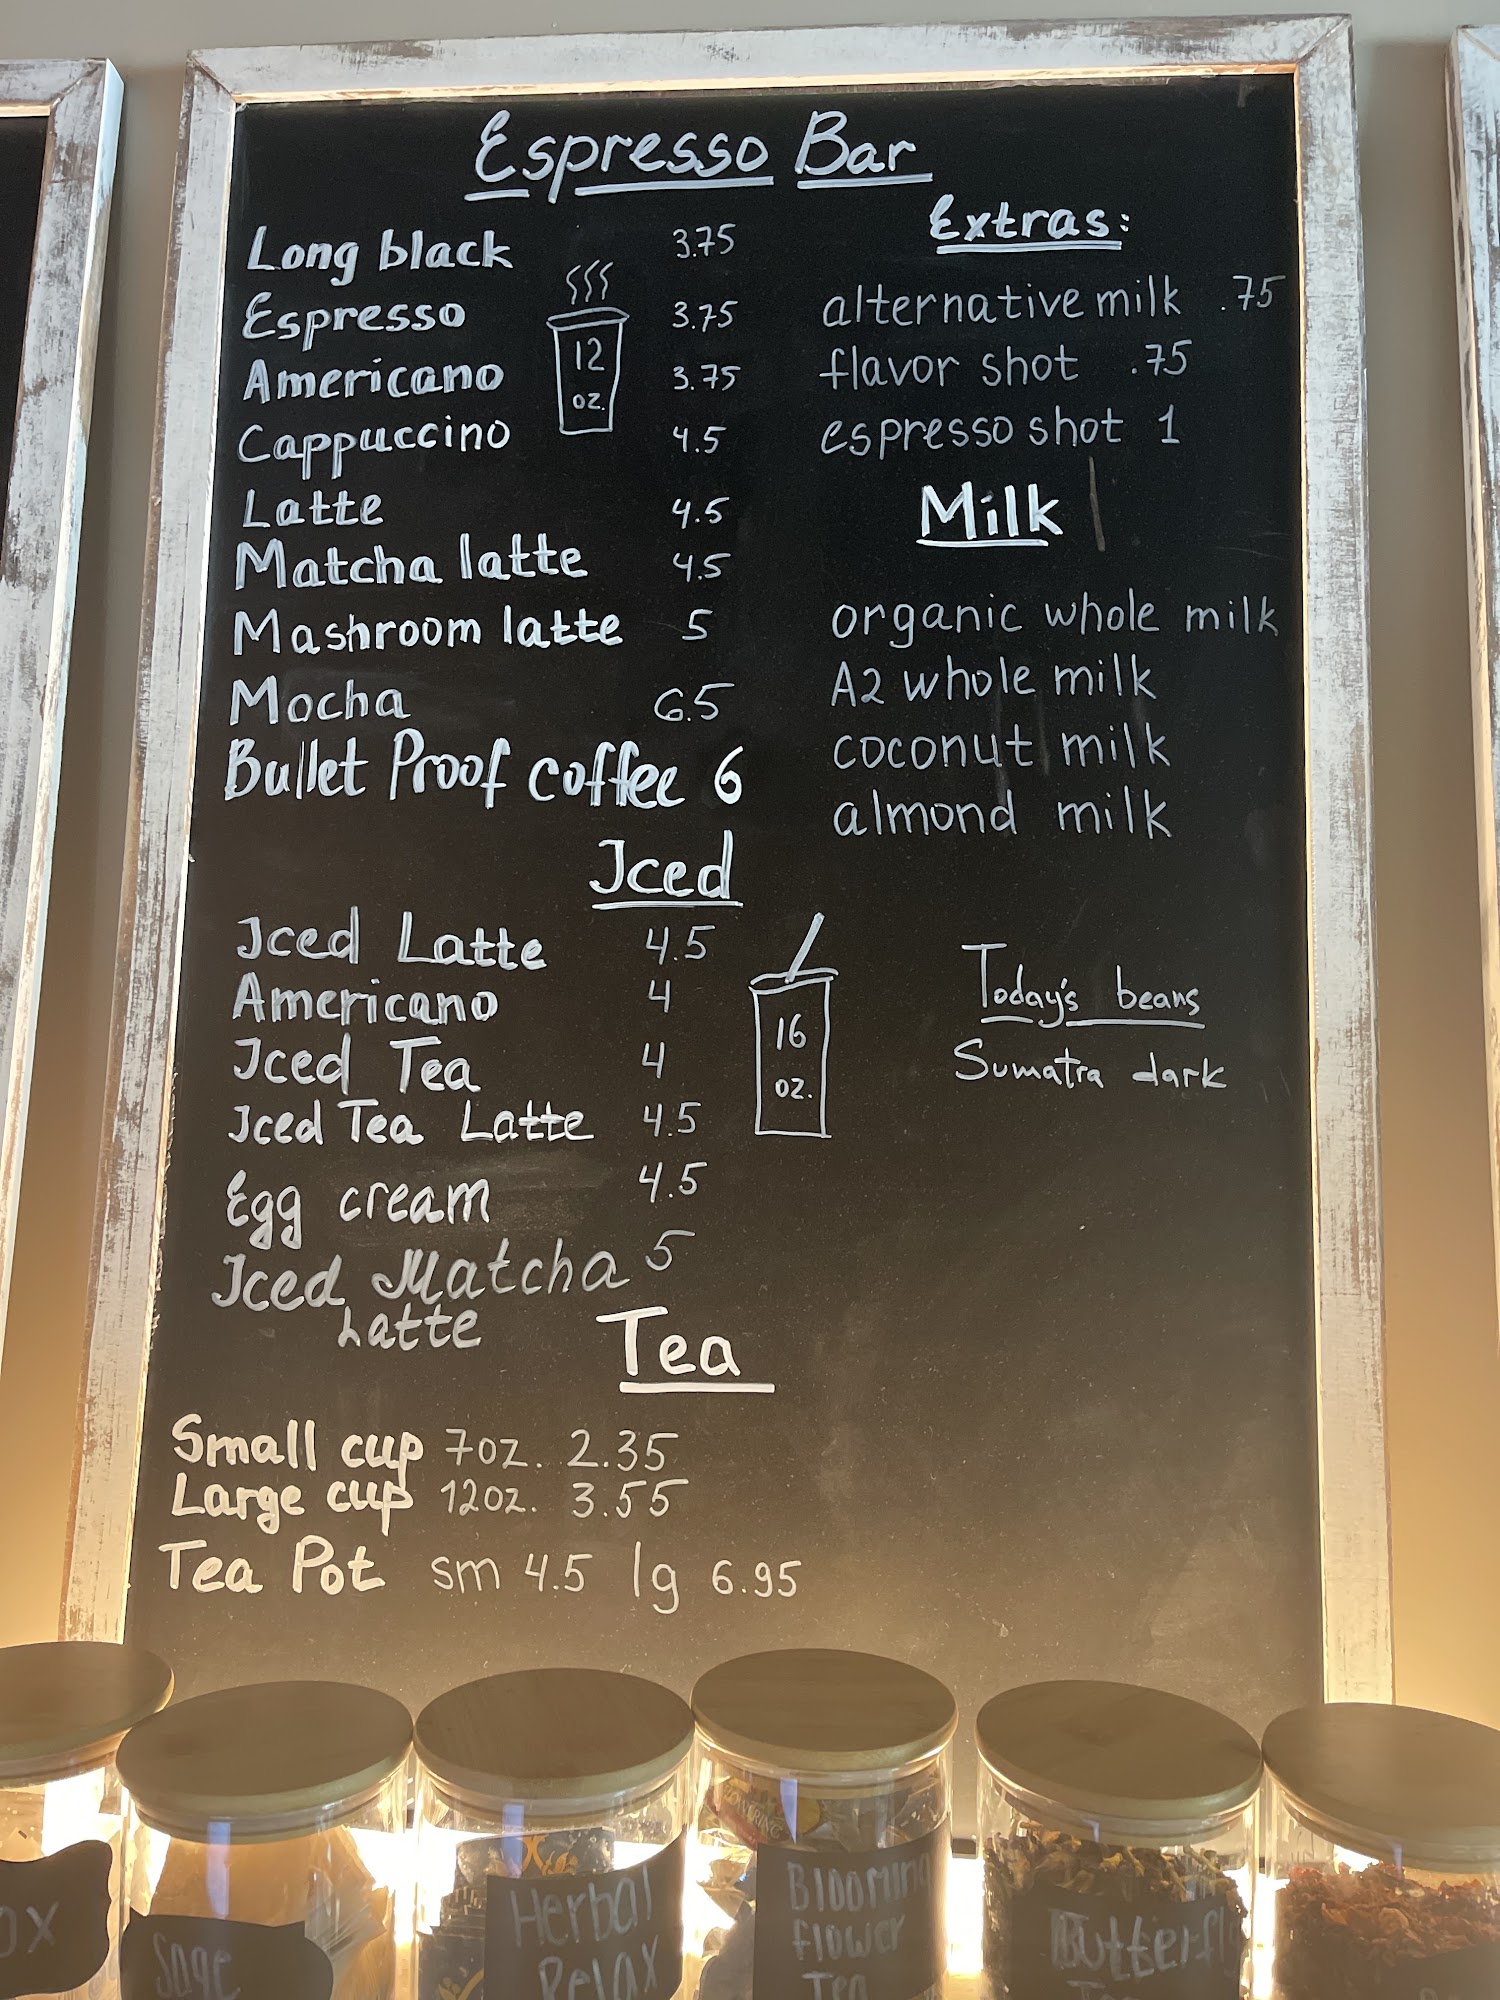 Espresso Bar
Long black 3.75
Espresso 3.75
Americano 3.75
Cappuccino 4.5
Latte 4.5
Matcha latte 4.5
Mashroom latte 5
Mocha 6.5
Bullet Proof coffee 6
12
oz.
Extras:
alternative milk .75
flavor shot .75
espresso shot 1
Milk
organic whole milk
A2 whole milk
coconut milk
almond milk
Iced
Iced Latte 4.5
Americano 4
Iced Tea 4
Iced Tea Latte 4.5
Egg cream 4.5
Iced Matcha 5
Latte
16
oz.
Today's beans
Sumatra dark
Tea
Small cup 7oz. 2.35
Large cup 12oz. 3.55
Tea Pot sm 4.5 lg 6.95
Sage
Herbal
Relax
Blooming
flower
Tea
Butterfly